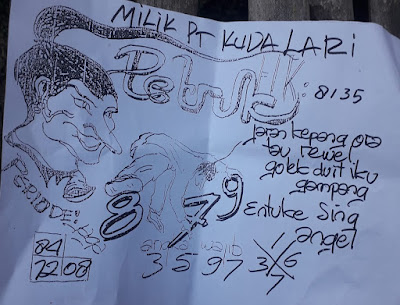 MILIK PT KUDA LARI
: 8135
jaran kepang ora
tau rewel
golek duit iku
gampang
Entuke Sing
angel
PERIODE:
8 7 9
84
72 08
angka wajib
3 5 9 7
3 6
7